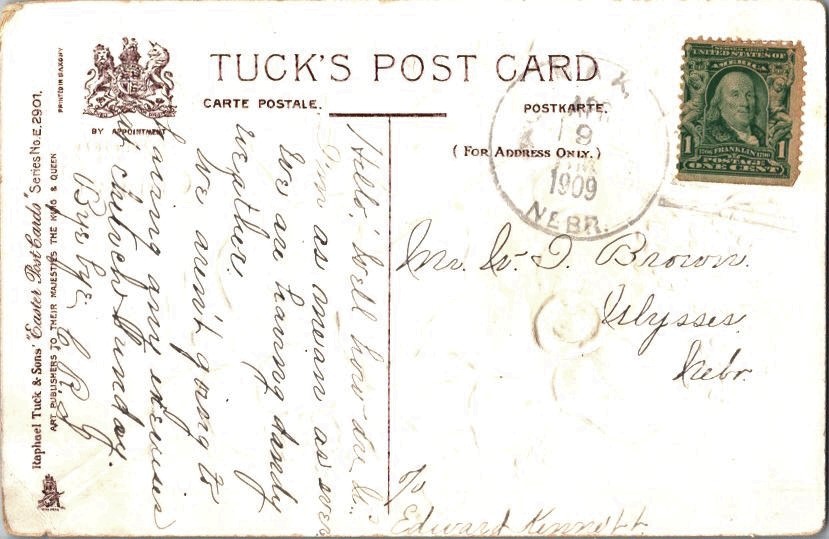 TUCK'S POST CARD
CARTE POSTALE.
POSTKARTE.
(FOR ADDRESS ONLY.)
BY APPOINTMENT
PRINTED IN SAXONY
Raphael Tuck & Sons' "Easter Post Cards" Series No. E. 2901.
ART PUBLISHERS TO THEIR MAJESTIES THE KING & QUEEN
UNITED STATES OF
AMERICA
1 FRANKLIN 1
POSTAGE
ONE CENT
9
1909
NEBR.
Hello, Well how are
I'm as mean as ever
We are having dandy
weather.
We aren't going to
having any exercises
at church Sunday.
Mr. W. I. Brown.
Ulysses
Nebr.
To
Edward Kennett